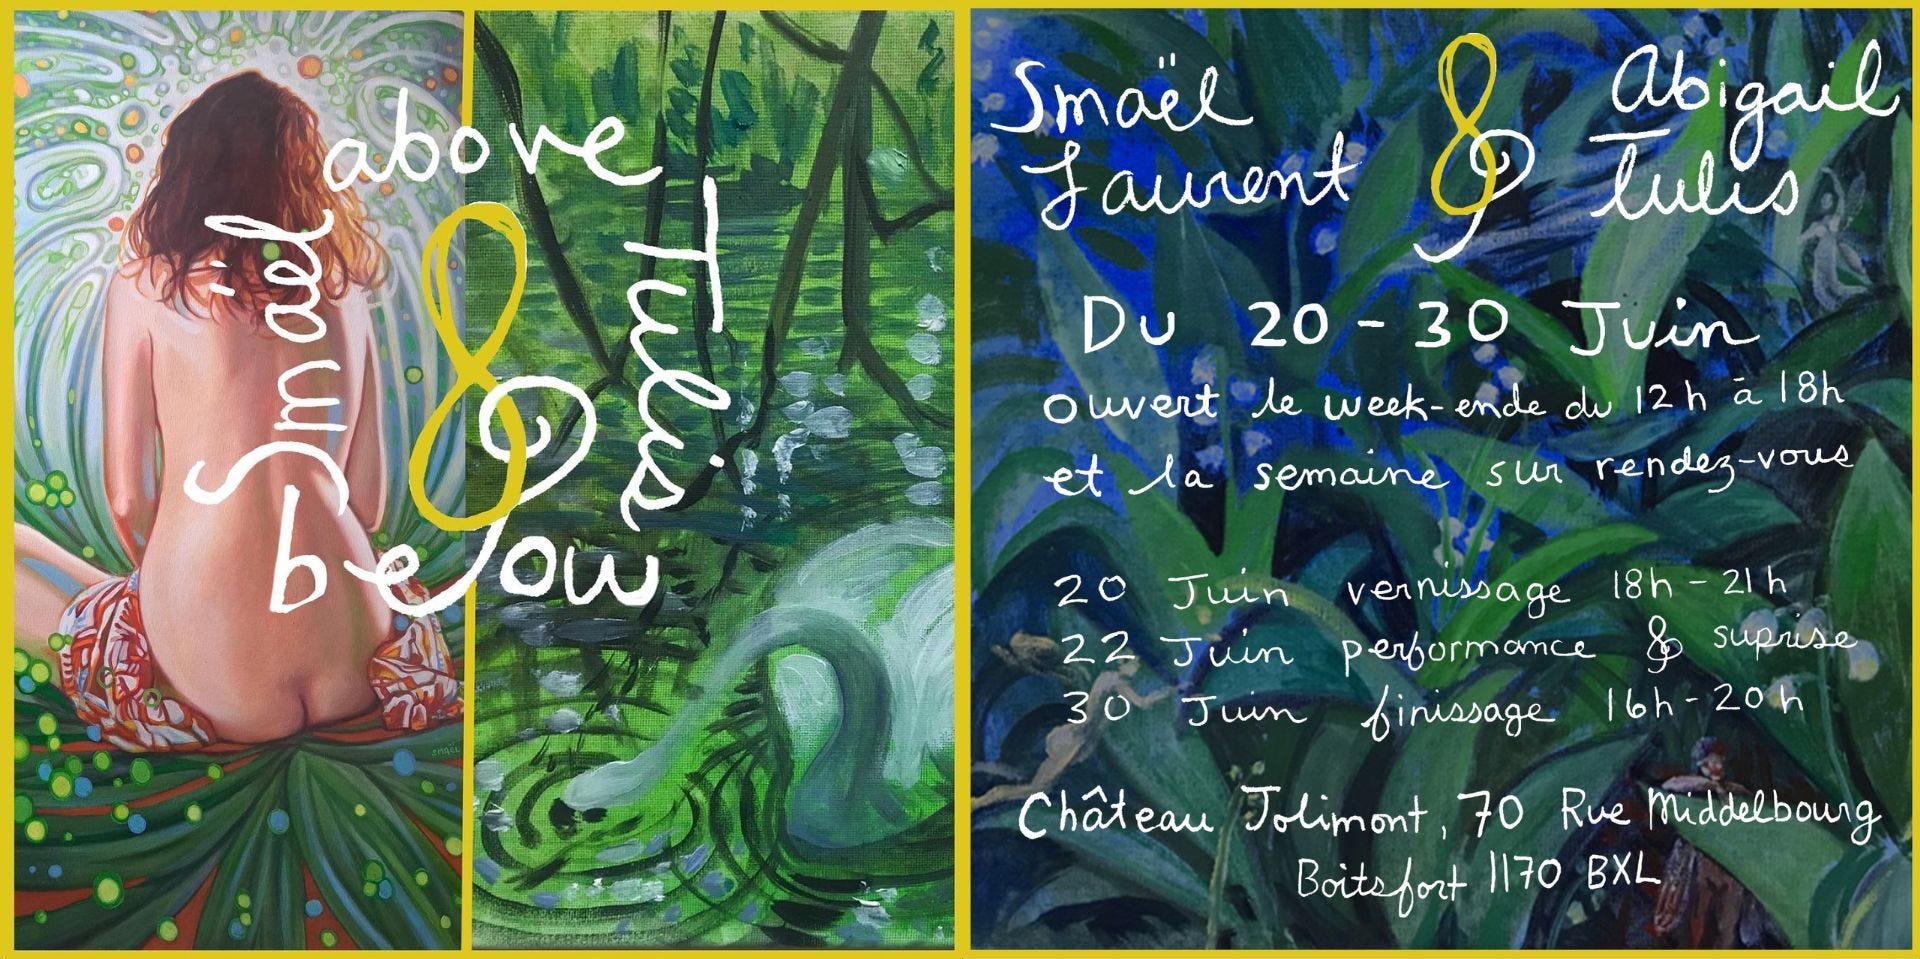 above
Smaël & Tulis
below
SMAËL
Smaël & Abigail
Laurent Tulis
Du 20 - 30 Juin
ouvert le week-ende du 12h à 18h
et la semaine sur rendez-vous
20 Juin vernissage 18h - 21h
22 Juin performance & suprise
30 Juin finissage 16h - 20h
Château Jolimont, 70 Rue Middelbourg
Boitsfort 1170 BXL